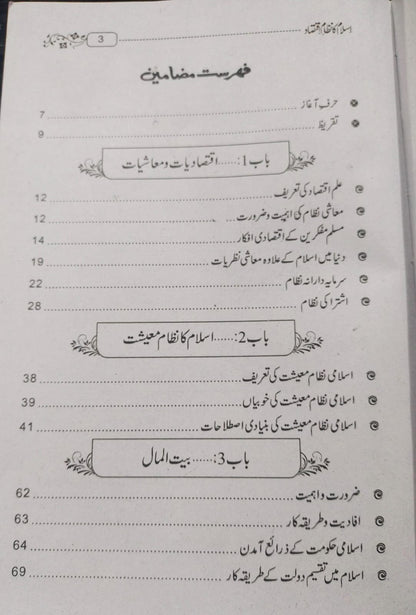 اسلام کا نظام اقتصاد 3
فہرست مضامین
حرف آغاز 7
تقریظ 9
باب 1: ...... اقتصادیات و معاشیات
علم اقتصاد کی تعریف 12
معاشی نظام کی اہمیت و ضرورت 12
مسلم مفکرین کے اقتصادی افکار 14
دنیا میں اسلام کے علاوہ معاشی نظریات 19
سرمایہ دارانہ نظام 22
اشتراکی نظام 28
باب 2: ...... اسلام کا نظام معیشت
اسلامی نظام معیشت کی تعریف 38
اسلامی نظام معیشت کی خوبیاں 39
اسلامی نظام معیشت کی بنیادی اصطلاحات 41
باب 3: ...... بیت المال
ضرورت و اہمیت 62
افادیت و طریقہ کار 63
اسلامی حکومت کے ذرائع آمدن 64
اسلام میں تقسیم دولت کے طریقہ کار 69